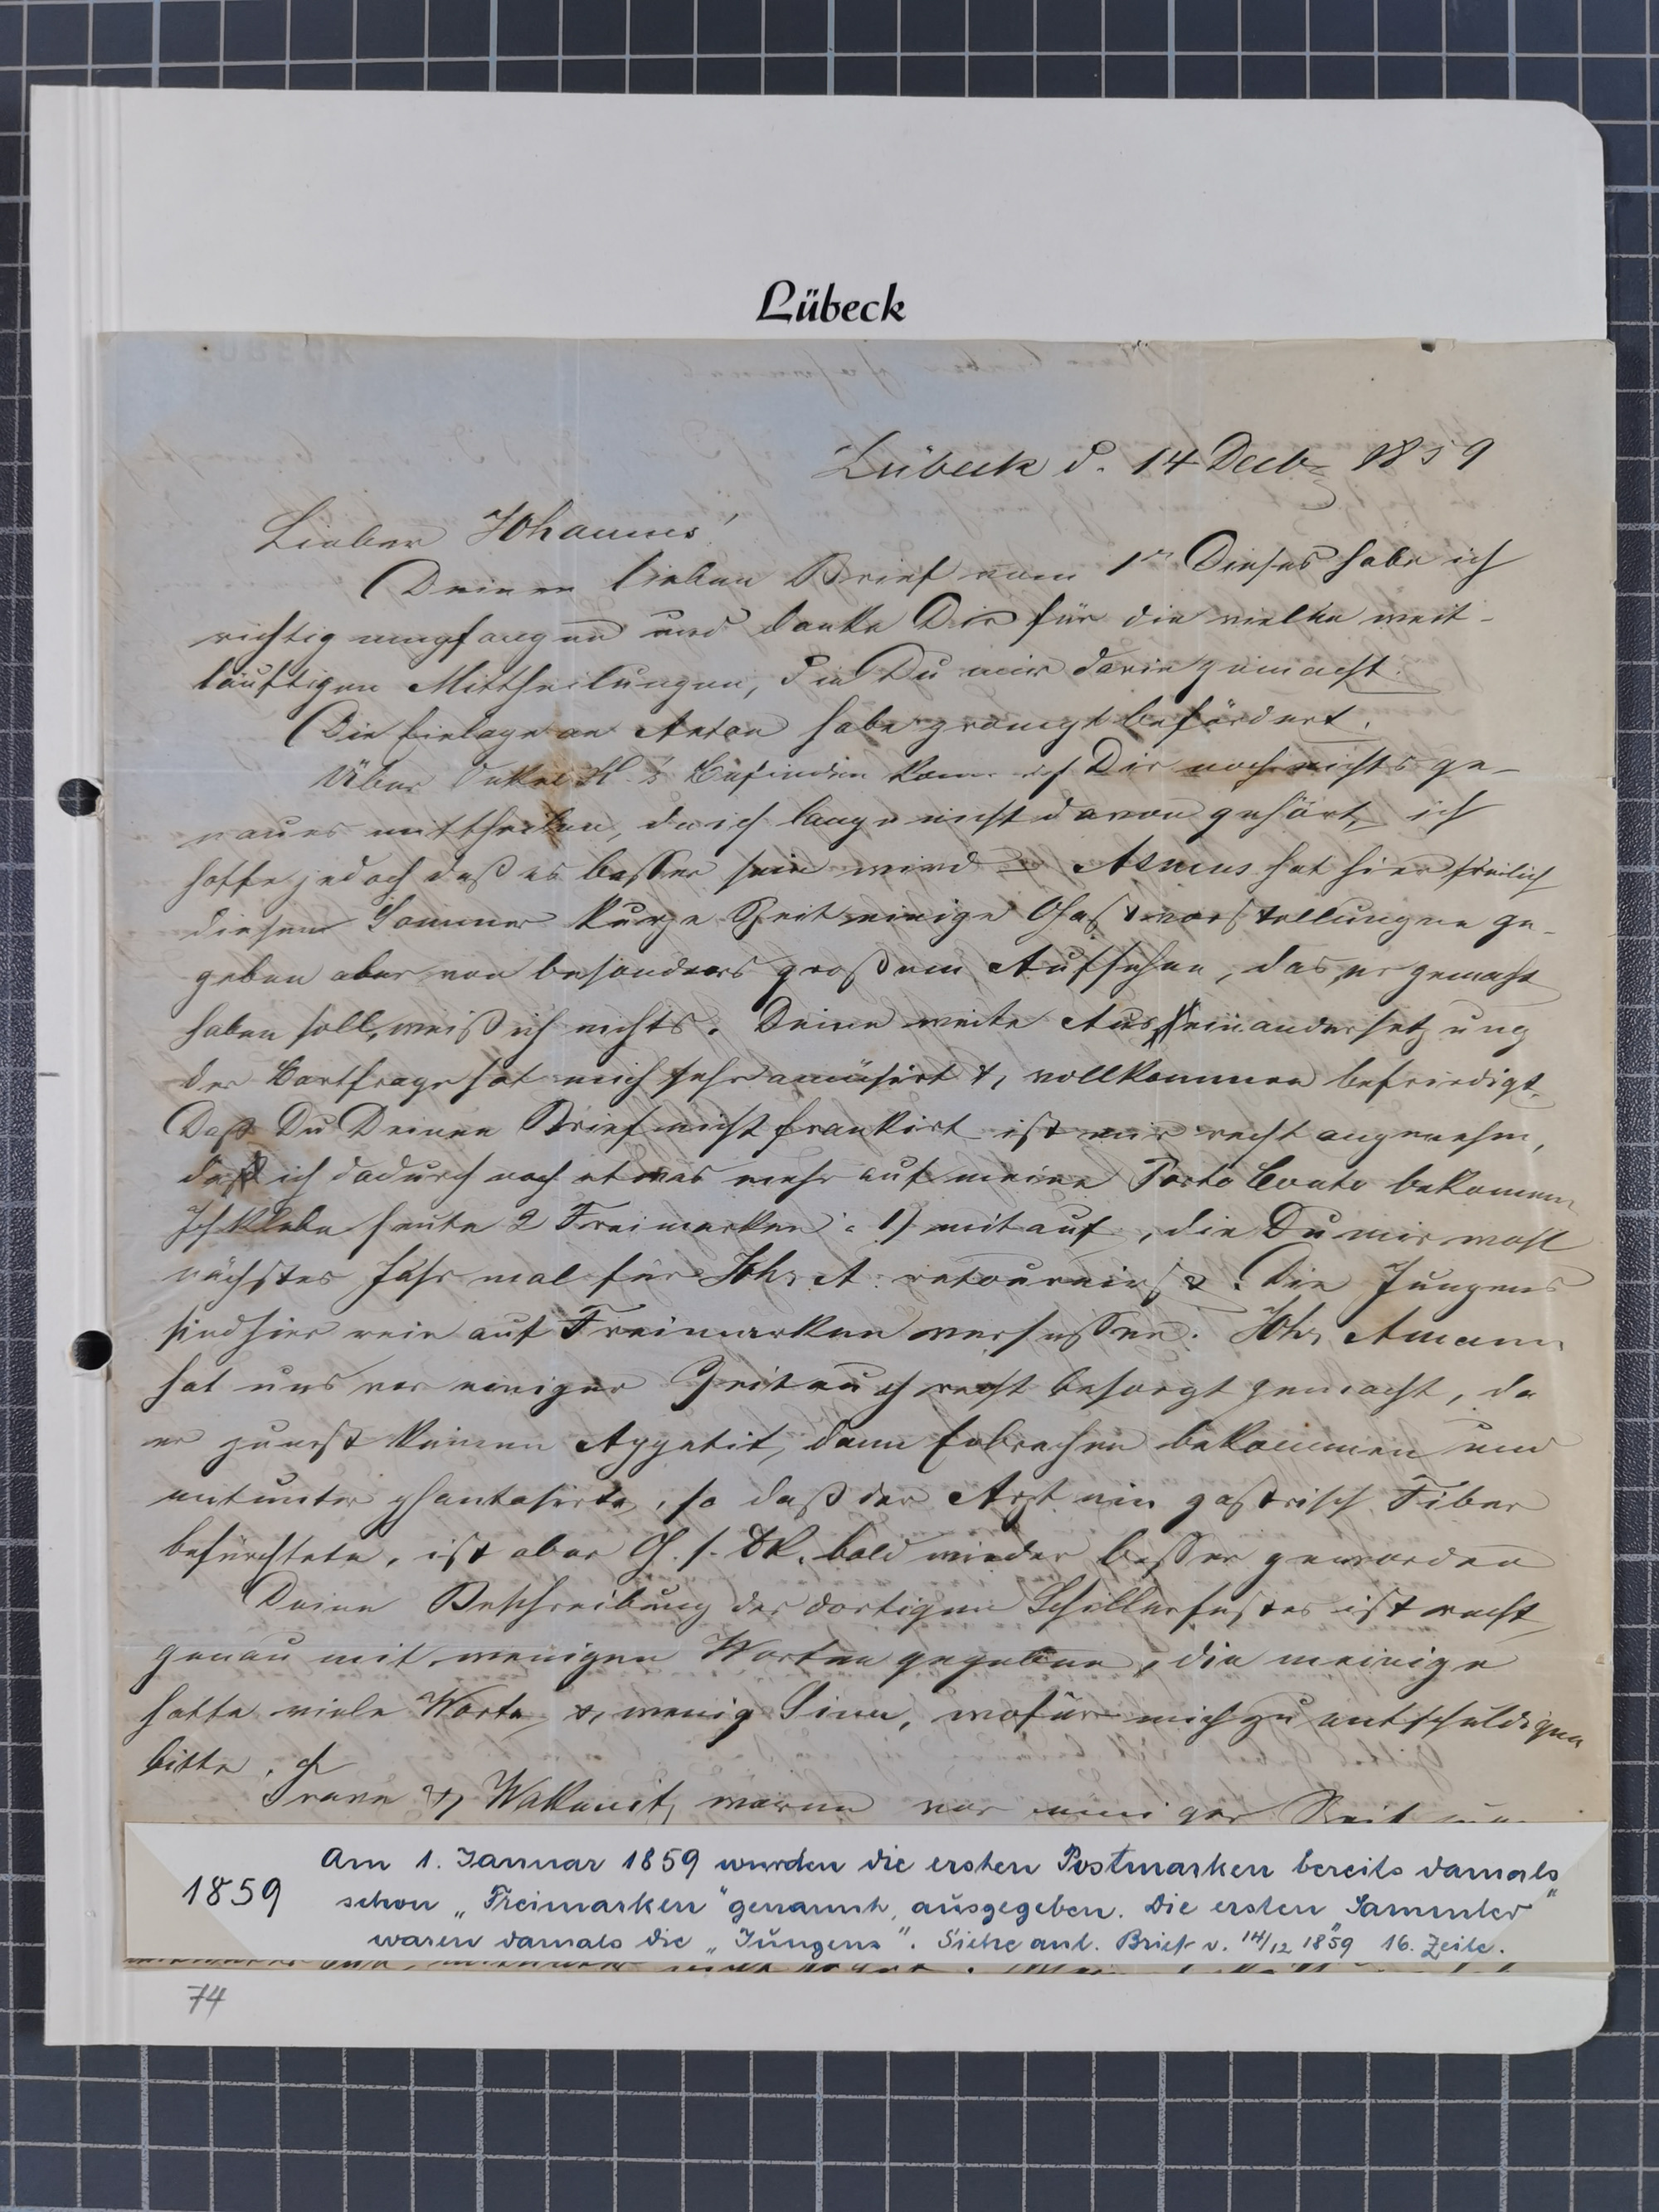 Lübeck
Lübeck d. 14 Decbr 1859
Lieber Johannes!
Deinen lieben Brief vom 1ten Dieses habe ich
richtig empfangen und danke Dir für die vielen weit-
läuftigen Mittheilungen, die Du mir darin gemacht.
Die Einlage an Anton habe prompt befördert.
Über Onkel H's Befinden kann ich Dir noch nichts ge-
naues mittheilen, da ich lange nicht davon gehört, ich
hoffe jedoch daß es besser sein wird Asmus hat hier freilich
diesen Sommer kurze Zeit einige Gastvorstellungen ge-
geben aber von besonders großem Aufsehen, das er gemacht
haben soll, weiß ich nichts. Deine weite Auseinandersetzung
der Bartfrage hat mich sehr amüsirt & vollkommen befriedigt.
Daß Du Deinen Brief nicht frankirt ist mir recht angenehm,
da ich dadurch noch etwas mehr auf meine Porto Conto bekomme
Ich klebe heute 2 Freimarken a 1ß mit auf, die Du mir wohl
nächstes Jahr mal für Joh. A. retournirst. Die Jungens
sind hier rein auf Freimarken versessen. Joh. Amann
hat uns vor einiger Zeit auch recht besorgt gemacht, da
er zuerst keinen Appetit, dann Erbrechen bekommen und
mitunter phantasirte, so daß der Arzt ein gastrisch Fiber
befürchtete, ist aber G. s. D. bald wieder besser geworden
Deine Beschreibung des dortigen Schillerfestes ist recht
genau mit wenigen Worten gegeben, die meinige
hatte viele Worte & wenig Sinn, wofür mich zu entschuldigen
bitte.
Trave & Wakenitz waren vor einiger Zeit
1859
Am 1. Januar 1859 wurden die ersten Postmarken bereits damals
schon „Freimarken" genannt, ausgegeben. Die ersten „Sammler"
waren damals die „Jungens". Siehe anl. Brief v. 14/12 1859 16. Zeile.
74